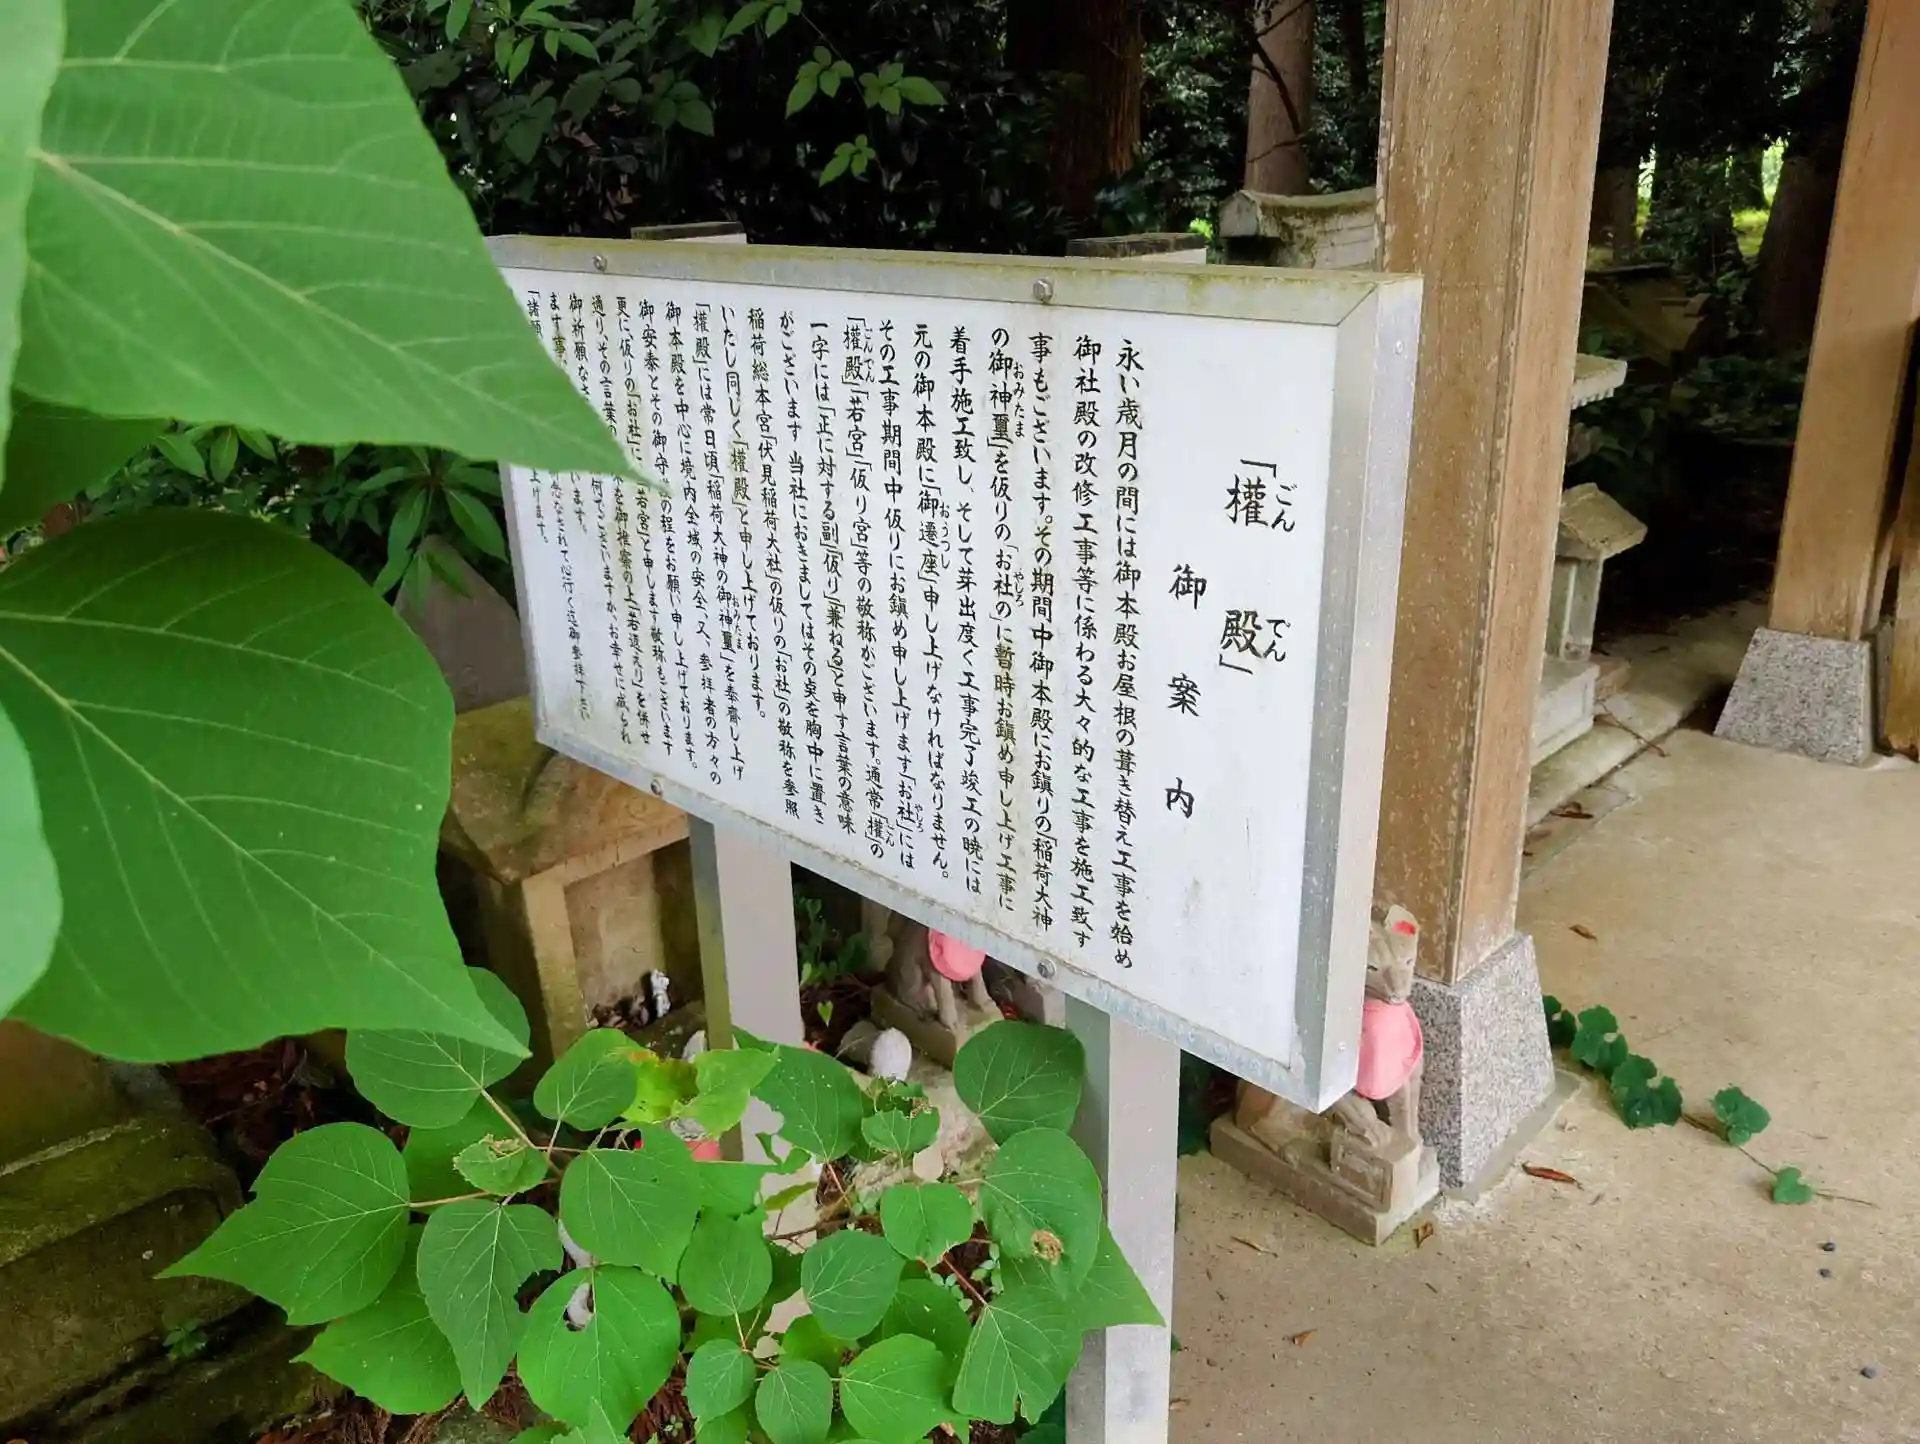 「權殿」
ごんでん
御案内
永い歳月の間には御本殿お屋根の葺き替え工事を始め
御社殿の改修工事等に係わる大々的な工事を施工致す
事もございます。その期間中御本殿にお鎮りの「稲荷大神
の御神璽」を仮りの「お社の」に暫時お鎮め申し上げ工事に
おみたま
やしろ
着手施工致し、そして芽出度く工事完了竣工の暁には
元の御本殿に「御遷座」申し上げなければなりません。
おうつし
その工事期間中仮りにお鎮め申し上げます「お社」には
やしろ
「權殿」「若宮」「仮り宮」等の敬称がございます。通常「權」の
ごんでん
ごん
一字には「正に対する副」「仮り」「兼ねる」と申す言葉の意味
がございます 当社におきましてはその奌を胸中に置き
稲荷総本宮「伏見稲荷大社」の仮りの「お社」の敬称を参照
いたし同じく「權殿」と申し上げております。
「權殿」には常日頃「稲荷大神の御神璽」を奉齋し上げ
おみたま
御本殿を中心に境内全域の安全、又、参拝者の方々の
御安泰とその御守護の程をお願い申し上げております。
更に、仮りの「お社」に「若宮」と申します敬称もございます
通り、その言葉の を御推察の上「若返えり」を併せ
御祈願なさ 何でございますか、お幸せに成られ
ます事 念なされて心行く迄御参拝下さい
います。
「諸願 上げます。